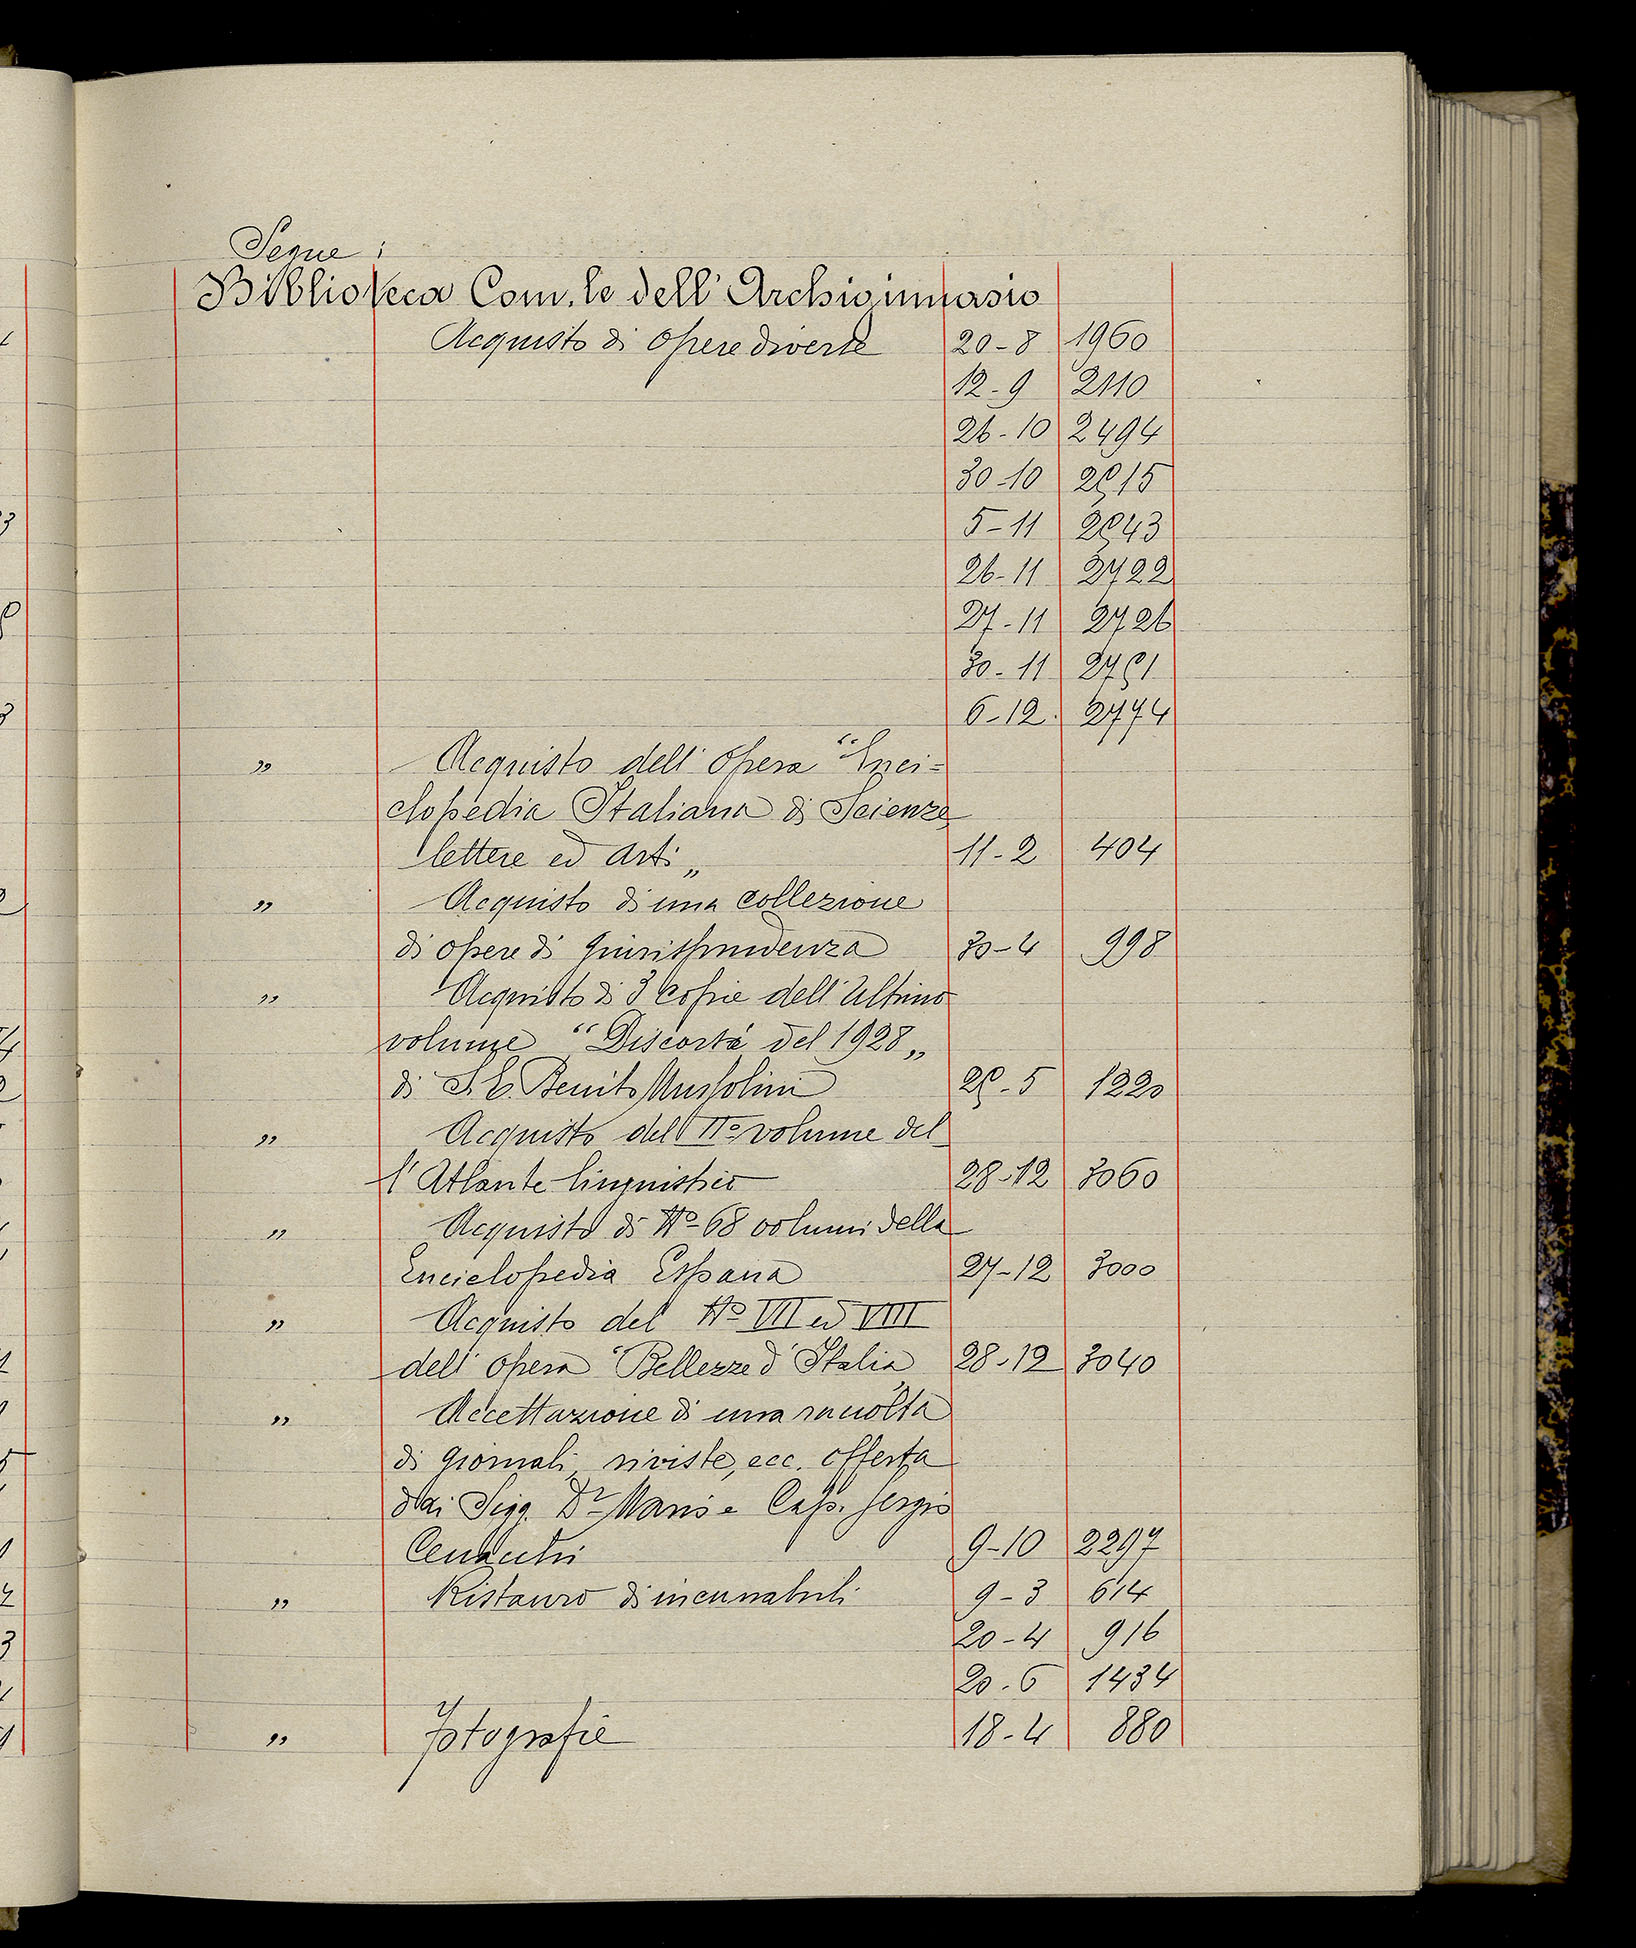 Segue:
Biblioteca Com.le dell'Archiginnasio
Acquisto di opere diverse 20-8 1960
12-9 2110
26-10 2494
30-10 2515
5-11 2543
26-11 2722
27-11 2726
30-11 2751
6-12. 2774
" Acquisto dell'opera "Enci=
clopedia Italiana di Scienze
lettere ed Arti" 11-2 404
" Acquisto di una collezione
di opere di giurisprudenza 30-4 998
" Acquisto di 3 copie dell'ultimo
volume "Discorsi del 1928"
di S. E. Benito Mussolini 25-5 1220
" Acquisto del IIº volume del
l'Atlante linguistico 28-12 3060
" Acquisto di Nº 68 volumi della
Enciclopedia Espana 27-12 3000
" Acquisto del Nº VII ed VIII
dell'opera "Bellezze d'Italia" 28-12 3040
" Accettazione di una raccolta
di giornali, riviste, ecc. offerta
dai Sigg. Dr Mario e Cap. Sergio
Cenacchi 9-10 2297
" Ristauro di incunabuli 9-3 614
20-4 916
20-6 1434
" Fotografie 18-4 880